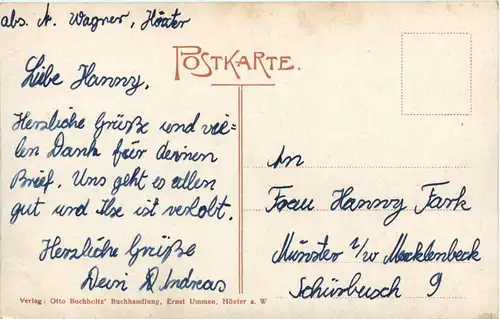 abs. A. Wagner, Höxter
POSTKARTE.
Liebe Hanny,
Herzliche Grüße und vie=
len Dank für deinen
Brief. Uns geht es allen
gut und Ilse ist verlobt.
Herzliche Grüße
Dein Andreas
An
Frau Hanny Fark
Münster i/W Mecklenbeck
Schürbusch 9
Verlag: Otto Buchholtz' Buchhandlung, Ernst Ummen, Höxter a. W